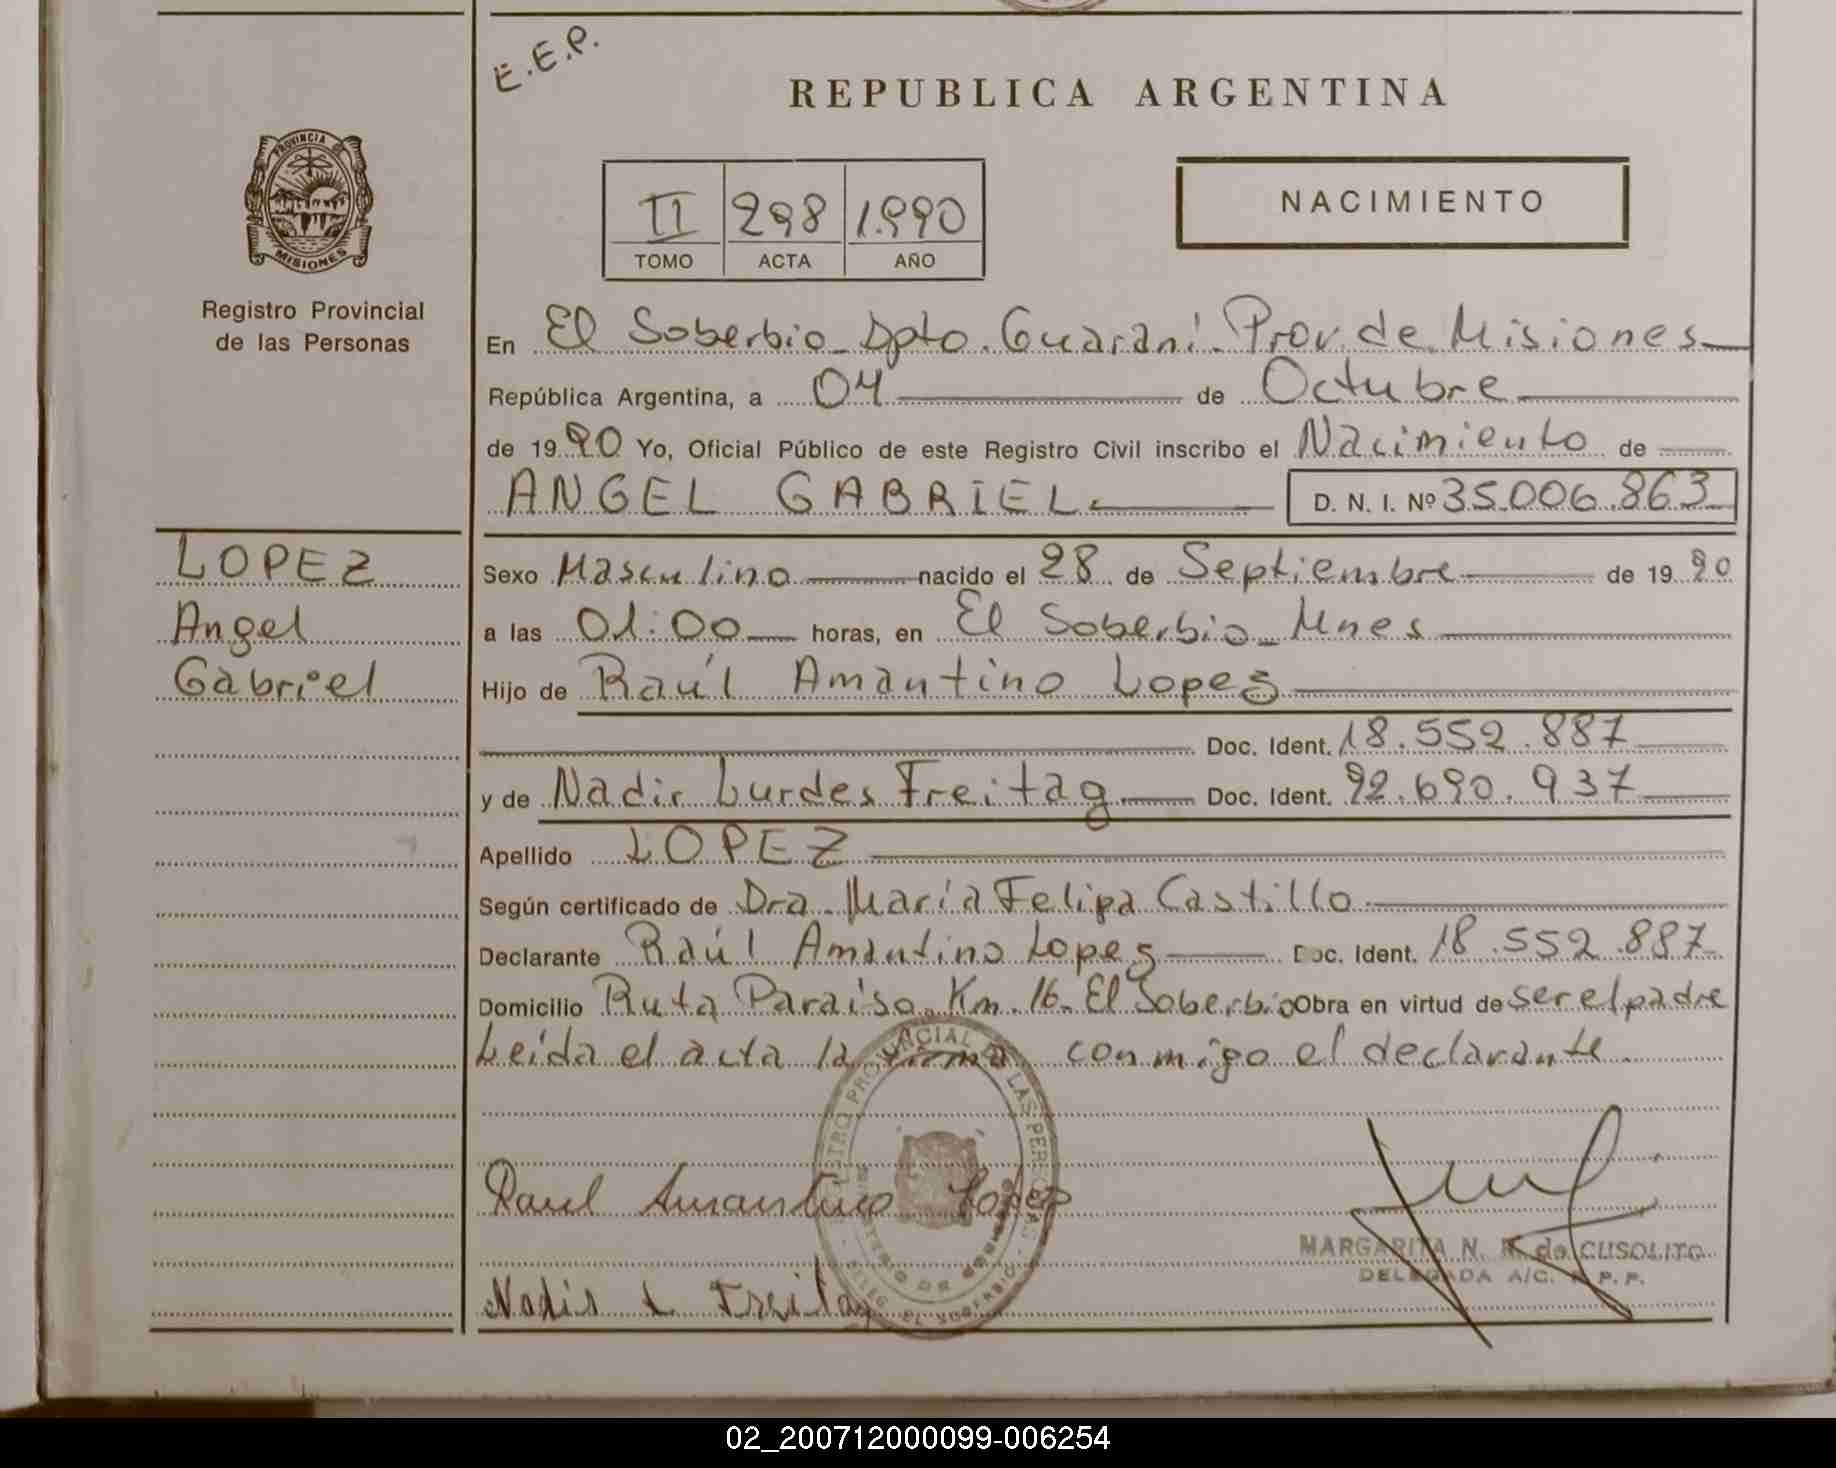 E.E.P.
REPUBLICA ARGENTINA
PROVINCIA DE
MISIONES
II 298 1.990
TOMO ACTA AÑO
NACIMIENTO
Registro Provincial
de las Personas
En El Soberbio Dpto. Guaraní. Prov. de Misiones
República Argentina, a 04 de Octubre
de 1990 Yo, Oficial Público de este Registro Civil inscribo el Nacimiento de
ANGEL GABRIEL D. N. I. Nº 35.006.863
LOPEZ
Angel
Gabriel
Sexo Masculino nacido el 28 de Septiembre de 1990
a las 01:00 horas, en El Soberbio Mnes
Hijo de Raúl Amantino Lopez
Doc. Ident. 18.552.887
y de Nadir Lurdes Freitag Doc. Ident. 92.690.937
Apellido LOPEZ
Según certificado de Dra. María Felipa Castillo
Declarante Raúl Amantino Lopez Doc. Ident. 18.552.887
Domicilio Ruta Paraiso Km. 16. El Soberbio Obra en virtud de ser el padre
Leída el acta la firma conmigo el declarante.
Raul Amantino Lopez
Nadir L Freitag
MARGARITA N. de CUSOLITO
DELEGADA A/C. R.P.P.
02_200712000099-006254